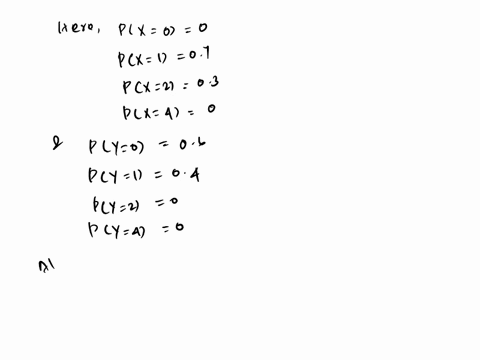 Here, P(X=0) = 0
P(X=1) = 0.7
P(X=2) = 0.3
P(X=4) = 0
& P(Y=0) = 0.6
P(Y=1) = 0.4
P(Y=2) = 0
P(Y=4) = 0